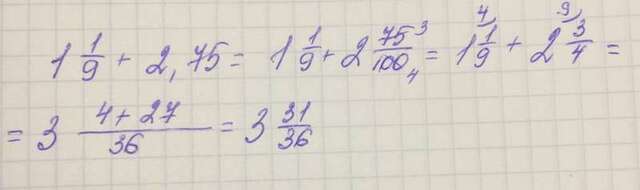 1 1/9 + 2,75 = 1 1/9 + 2 75³/100₄ = 1 ⁴⁾1/9 + 2 ⁹⁾3/4 =
= 3 (4+27)/36 = 3 31/36